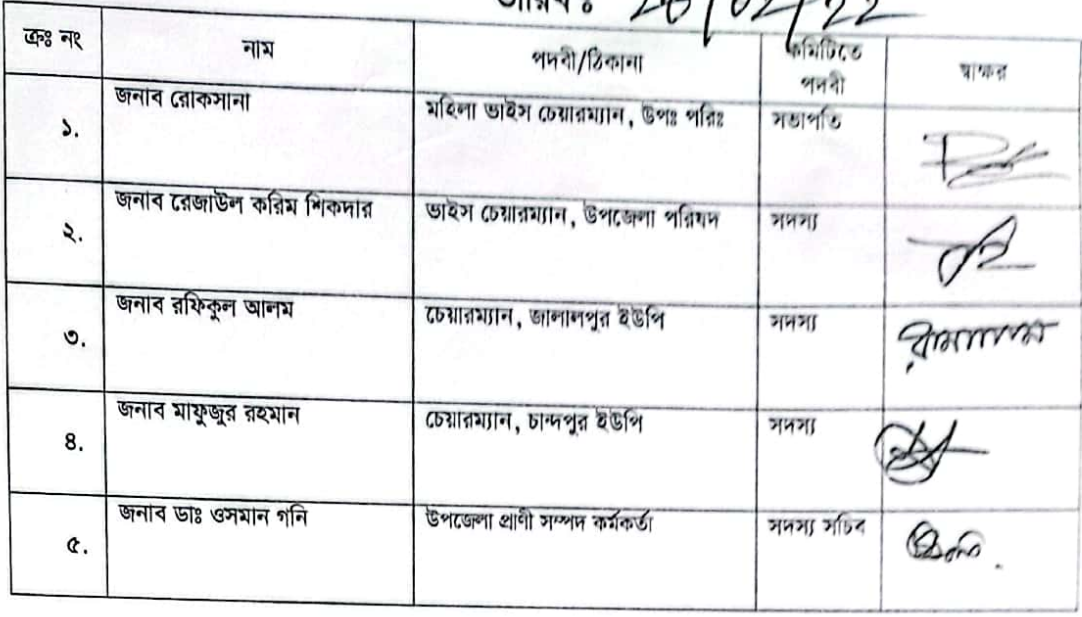 তারিখঃ 20/02/22
ক্রঃ নং নাম পদবী/ঠিকানা কমিটিতে পদবী স্বাক্ষর
১. জনাব রোকসানা মহিলা ভাইস চেয়ারম্যান, উপঃ পরিঃ সভাপতি
২. জনাব রেজাউল করিম শিকদার ভাইস চেয়ারম্যান, উপজেলা পরিষদ সদস্য
৩. জনাব রফিকুল আলম চেয়ারম্যান, জালালপুর ইউপি সদস্য
৪. জনাব মাফুজুর রহমান চেয়ারম্যান, চান্দপুর ইউপি সদস্য
৫. জনাব ডাঃ ওসমান গনি উপজেলা প্রাণী সম্পদ কর্মকর্তা সদস্য সচিব